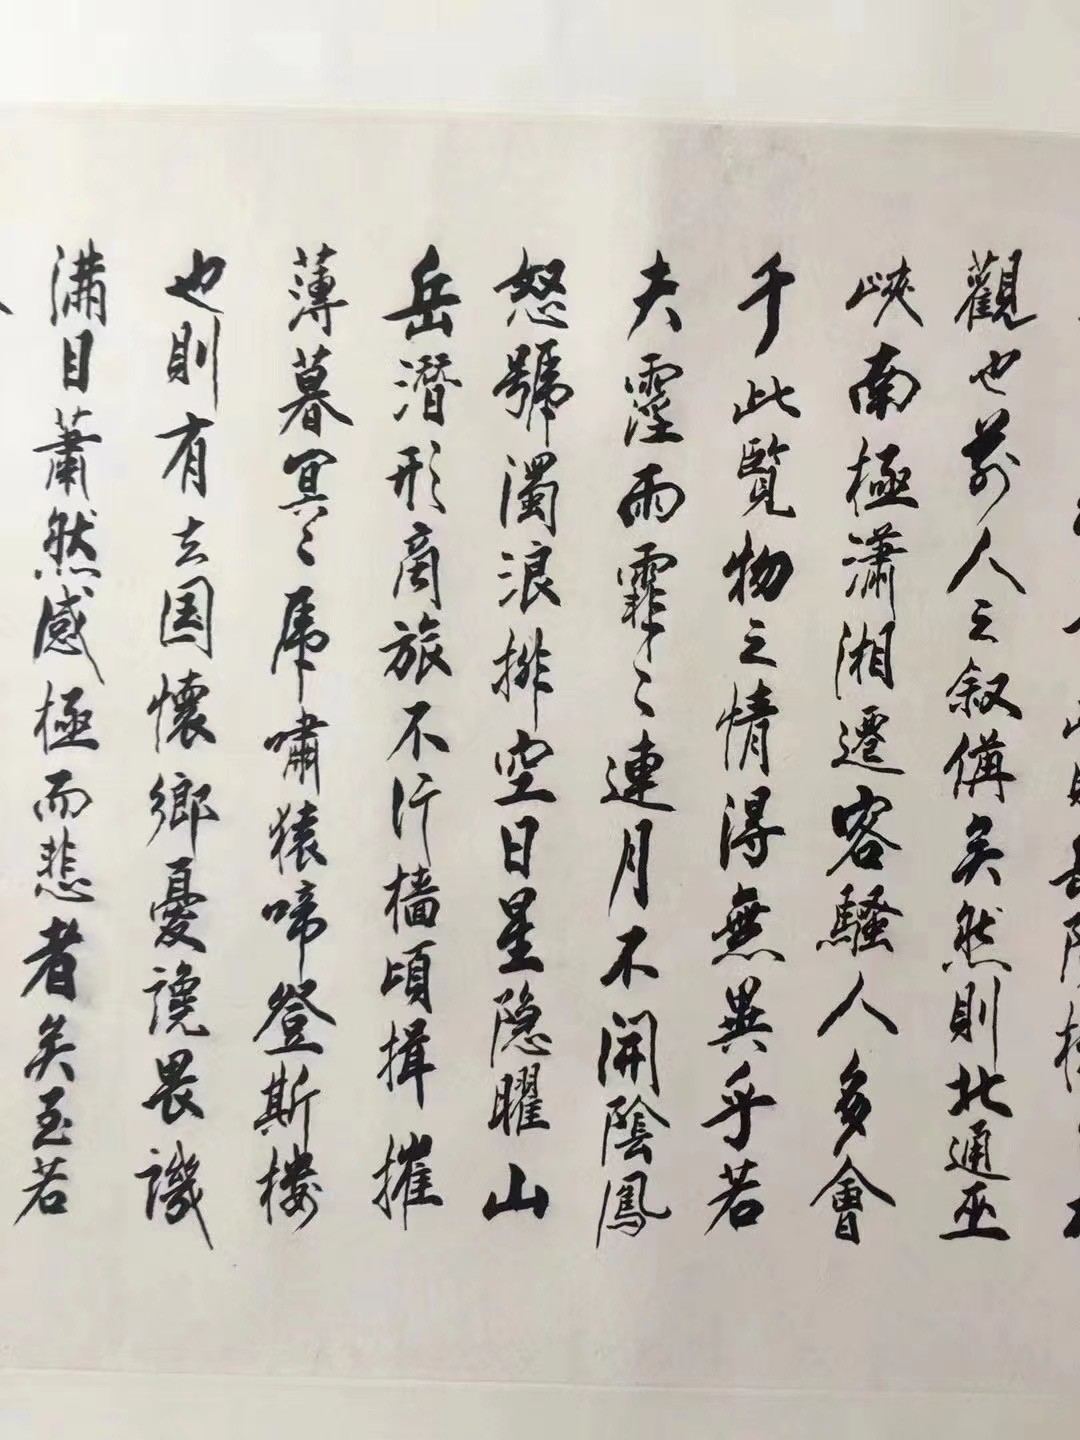 觀也前人之叙備矣然則北通巫
峽南極瀟湘遷客騷人多會
于此覽物之情得無異乎若
夫霪雨霏〻連月不開陰鳳
怒號濁浪排空日星隐曜山
岳潛形商旅不行檣頃揖摧
薄暮冥〻虎嘯猿啼登斯樓
也則有去国懷鄉憂讒畏譏
满目蕭然感極而悲者矣至若